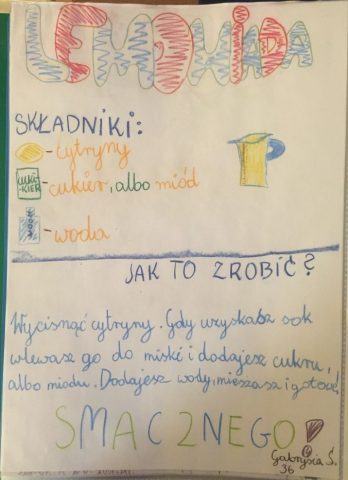 LEMONIADA
SKŁADNIKI:
- cytryny
CUKIER
- cukier, albo miód
WODA
- woda
JAK TO ZROBIĆ?
Wycisnąć cytryny. Gdy uzyskasz sok
wlewasz go do miski i dodajesz cukru,
albo miodu. Dodajesz wody, mieszasz i gotowe!
SMACZNEGO!
Gabrysia Ś.
3b